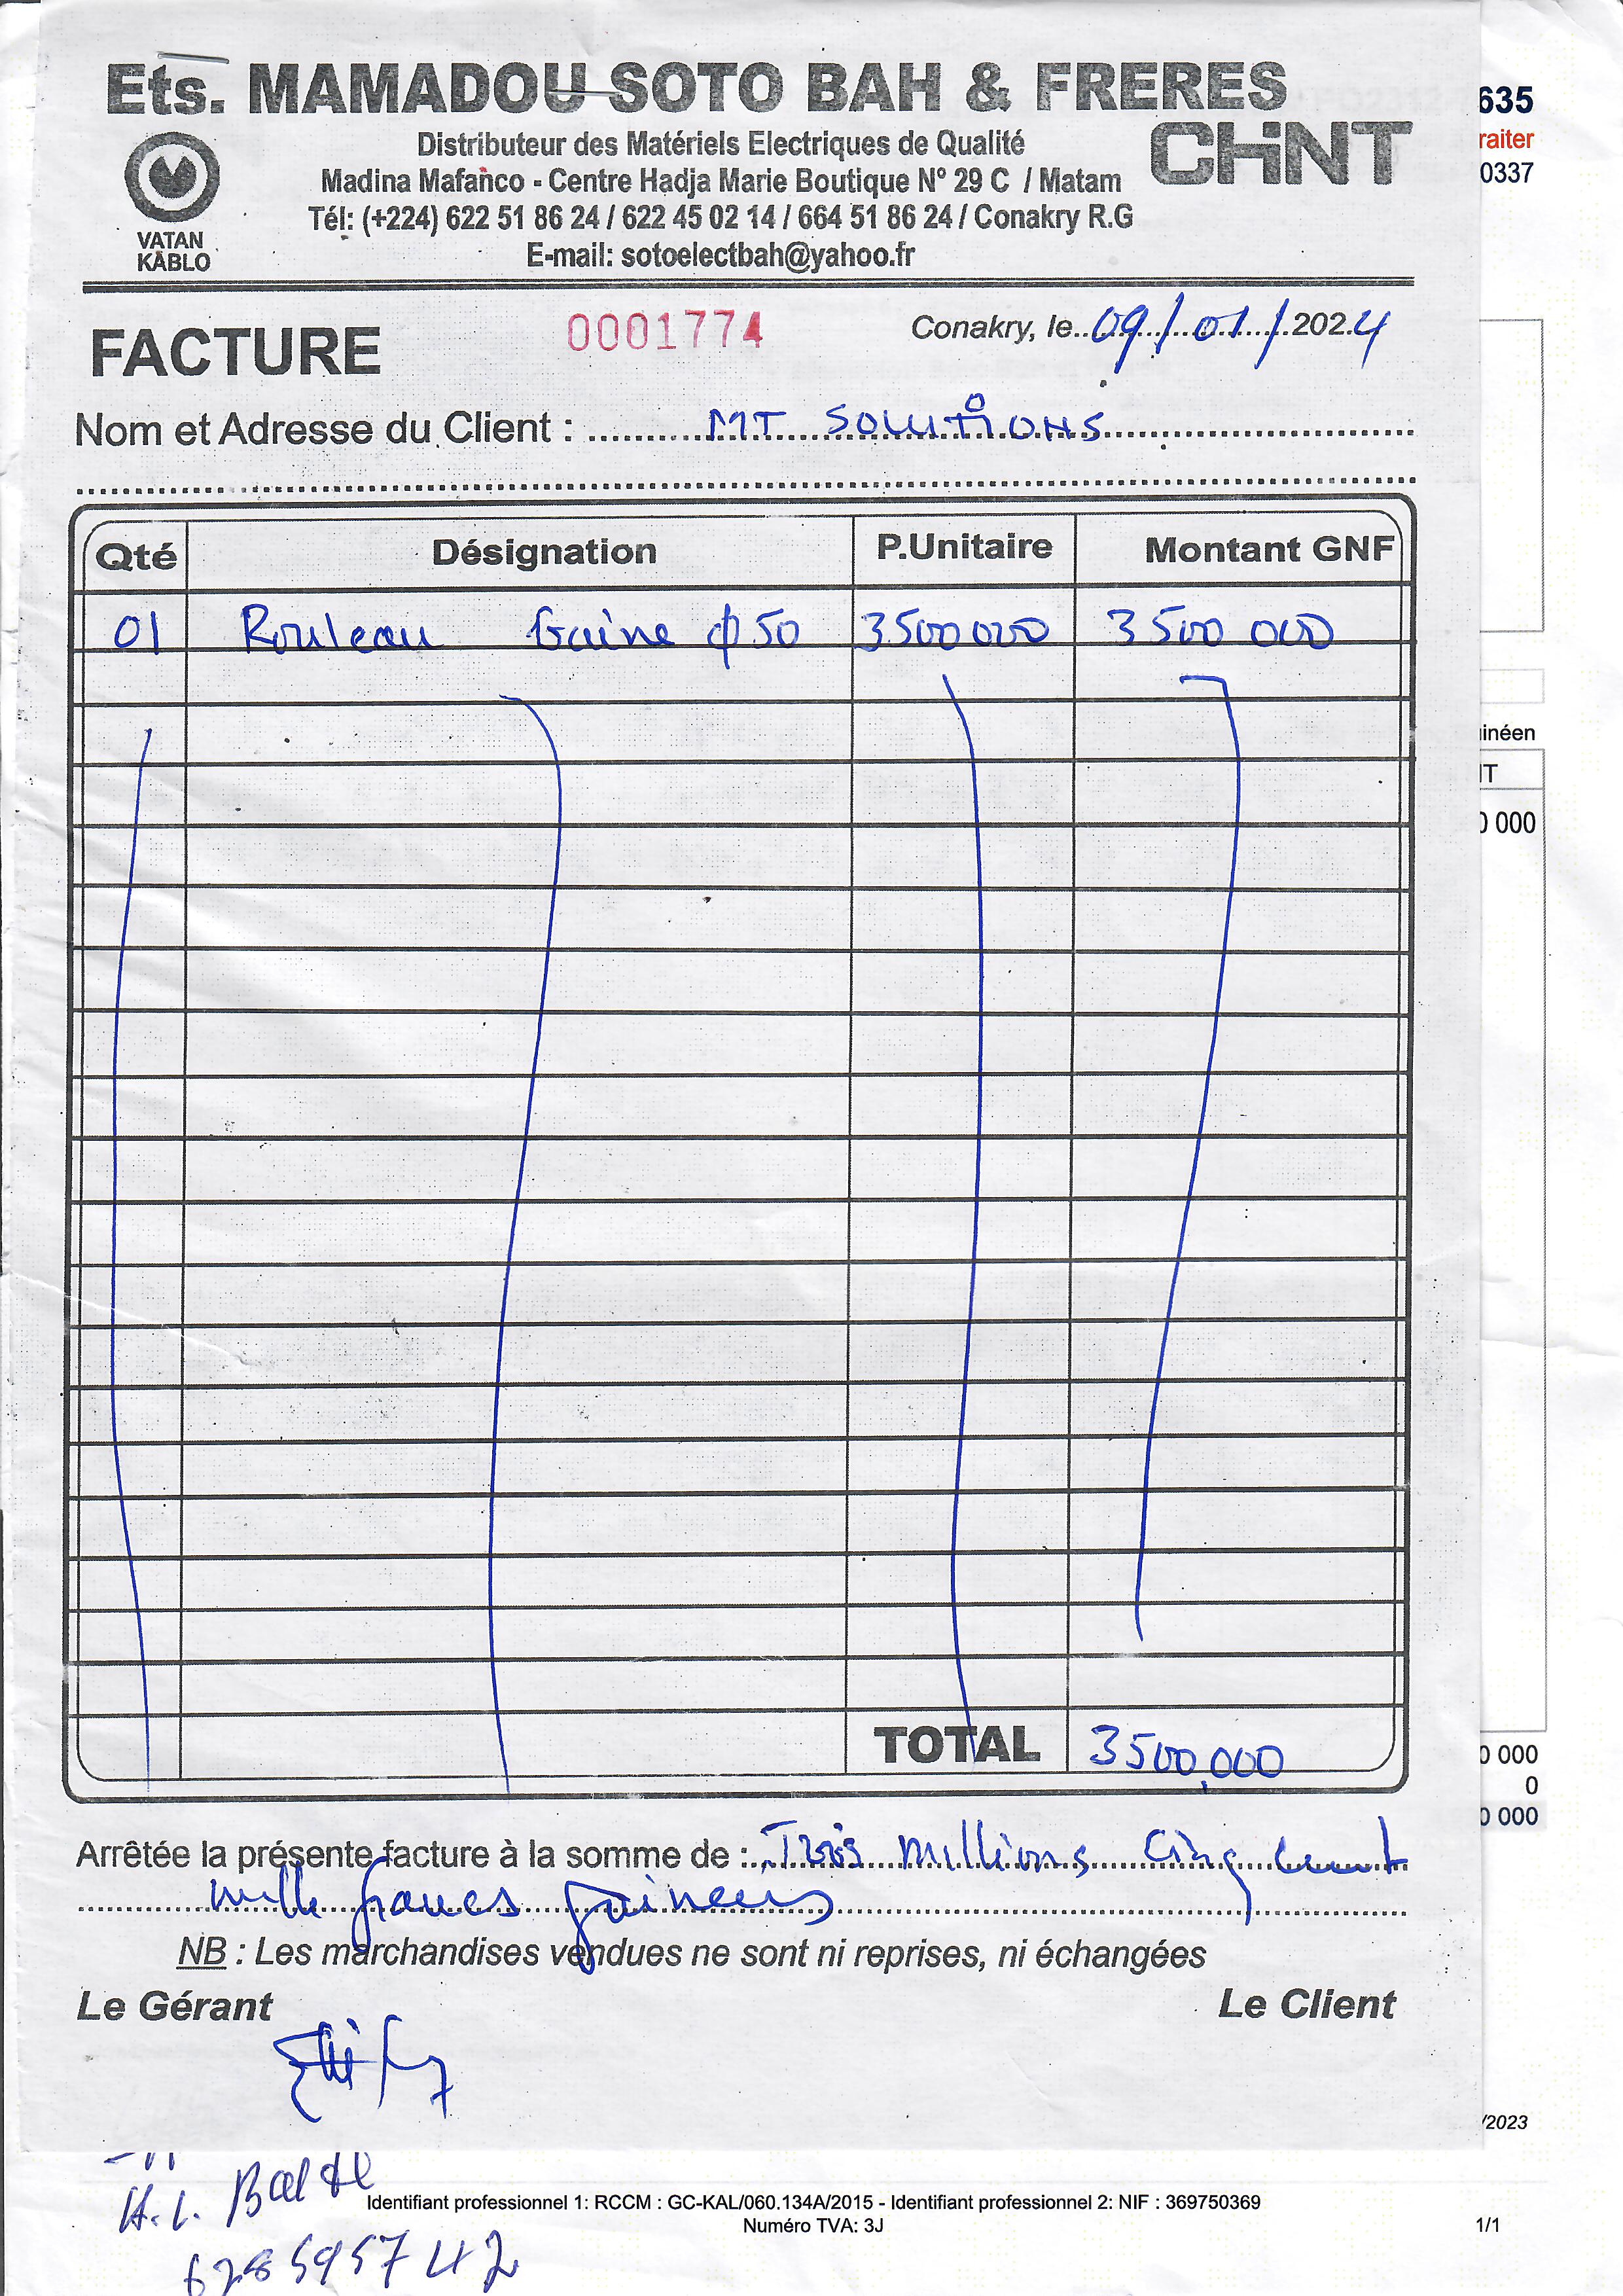 Ets. MAMADOU SOTO BAH & FRERES
635
CHiNT
raiter
Distributeur des Matériels Electriques de Qualité
Madina Mafanco - Centre Hadja Marie Boutique N° 29 C / Matam
0337
Tél: (+224) 622 51 86 24 / 622 45 02 14 / 664 51 86 24 / Conakry R.G
VATAN
KABLO
E-mail: sotoelectbah@yahoo.fr
FACTURE
0001774
Conakry, le 09/01/2024
Nom et Adresse du Client : MT SOLUTiONS
Qté Désignation P.Unitaire Montant GNF
01 Rouleau Gaine ϕ 50 3500000 3500 000
inéen
IT
0 000
TOTAL 3500,000
0 000
0
0 000
Arrêtée la présente facture à la somme de : Trois millions cinq cent
mille francs guineens
NB : Les marchandises vendues ne sont ni reprises, ni échangées
Le Gérant Le Client
/2023
Identifiant professionnel 1: RCCM : GC-KAL/060.134A/2015 - Identifiant professionnel 2: NIF : 369750369
Numéro TVA: 3J
1/1